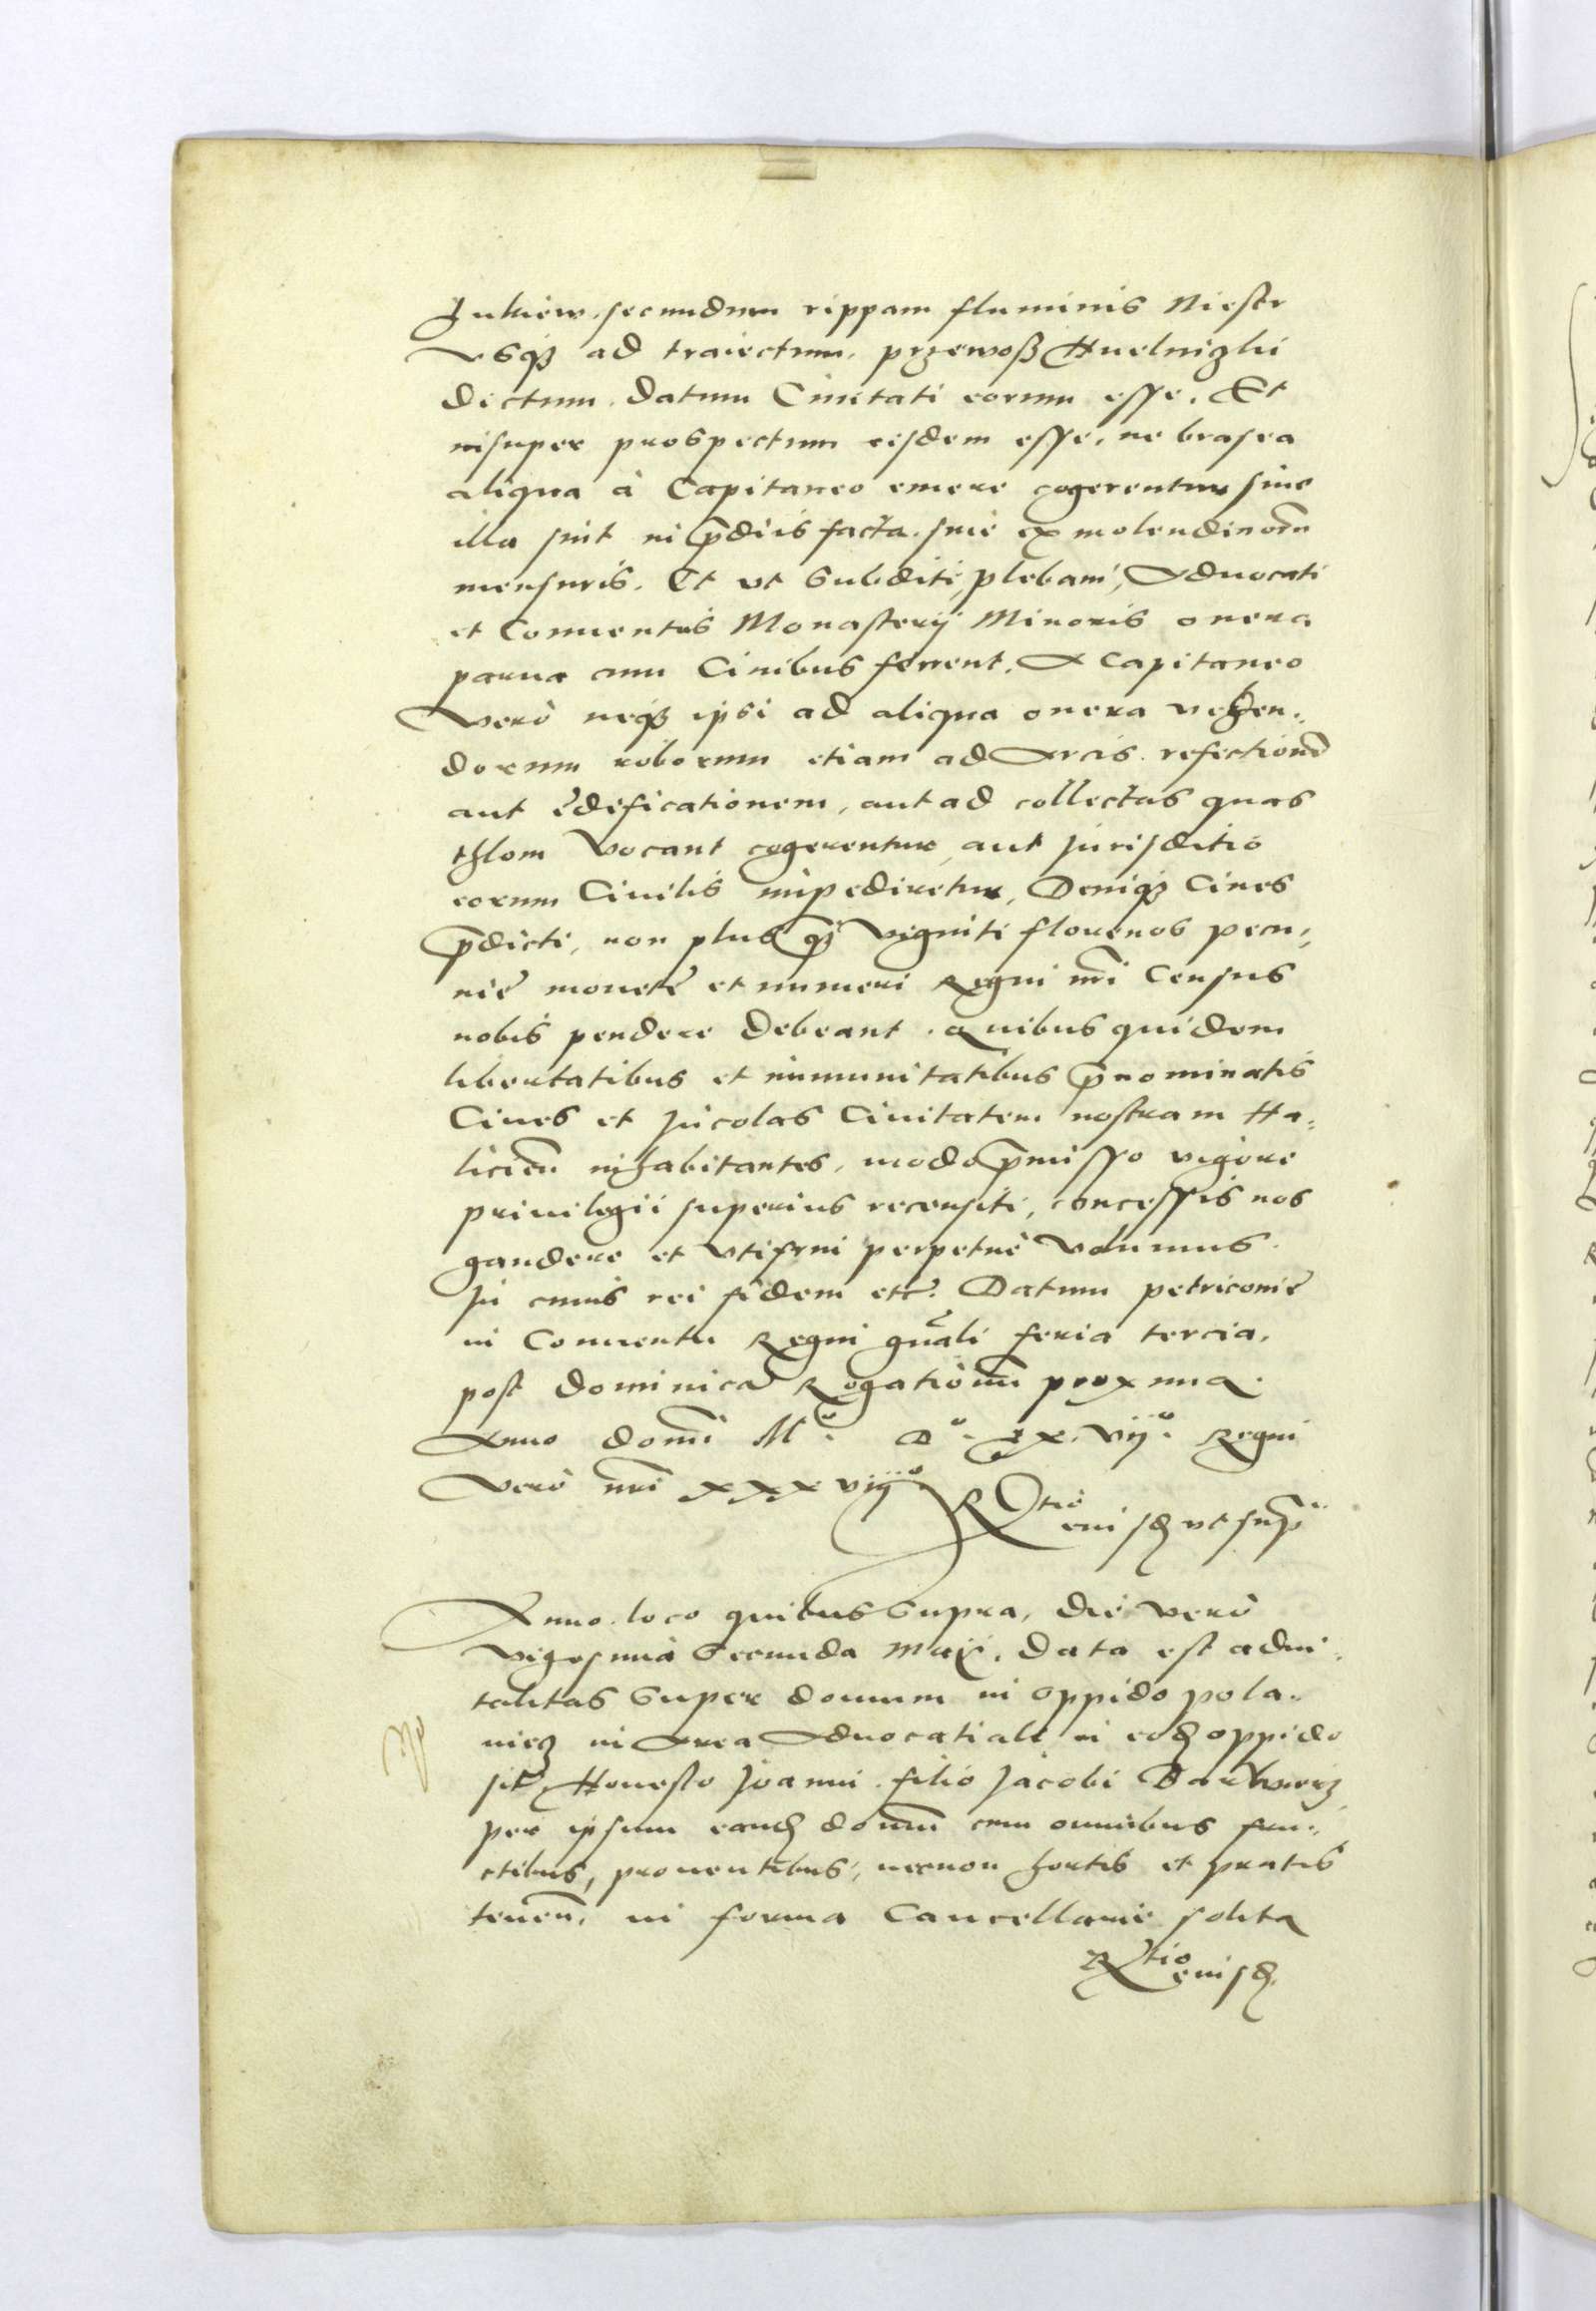 Zukiew secundum rippam fluminis Niestr
vsqȝ ad traiectum, przewoß Huelnizki
dictum datum Ciuitati eorum esse. Et
insuper prospectum eisdem esse, ne brasea
aliqua à Capitaneo emere cogerentur siue
illa sint in p̄dijs facta siue ex molendinorū
mensuris. Et vt Subditi, plebani, Aduocati
et Conuentus Monasterij Minoris onera
parua cum Ciuibus ferrent. A Capitaneo
Verò neqȝ ipsi ad aliqua onera vehen¸
dorum roborum etiam ad Arcis refectionē
aut ędificationem, aut ad collectas quas
thlom Vocant cogerentur, aut Jurisditio
eorum Ciuilis impediretur, Deniqȝ Ciues
p̄dicti, non plus qȝ viginti florenos pecu¸
nię monetę et numeri Regni nr̄i Census
nobis pendere debeant. Quibus quidem
libertatibus et immunitatibus p̄nominatis
Ciues et Incolas Ciuitatem nostram Ha¸
licien̄ inhabitantes, modo p̄misso vigore
priuilegii superius recensiti, concessis nos
gaudere et Vtifrui perpetuè Volumus.
In cuius rei fidem etc̄. Datum petricouię
in Conuentu Regni gn̄ali feria tercia,
post dominicā Rogationū proxima.
Anno domī Mº. Dº. XL. vijº. Regni
Verò nr̄i xxxviijº
R̃tio eiusḋ vt sup̄
Anno loco quibus Supra, die Verò
Vigesima Secunda Maij. Data est adui¸
talitas Super domum in oppido pola¸
niecz in Area Aduocatiali in eodḋ oppido
sit̄ Honesto Joanni filio Jacobi
per ipsum eandḋ domū cum omnibus fru¸
ctibus, prouentibus, necnon hortis et pratis
tenen̄. in forma Cancellarię solita
R̃tio eiusḋ.